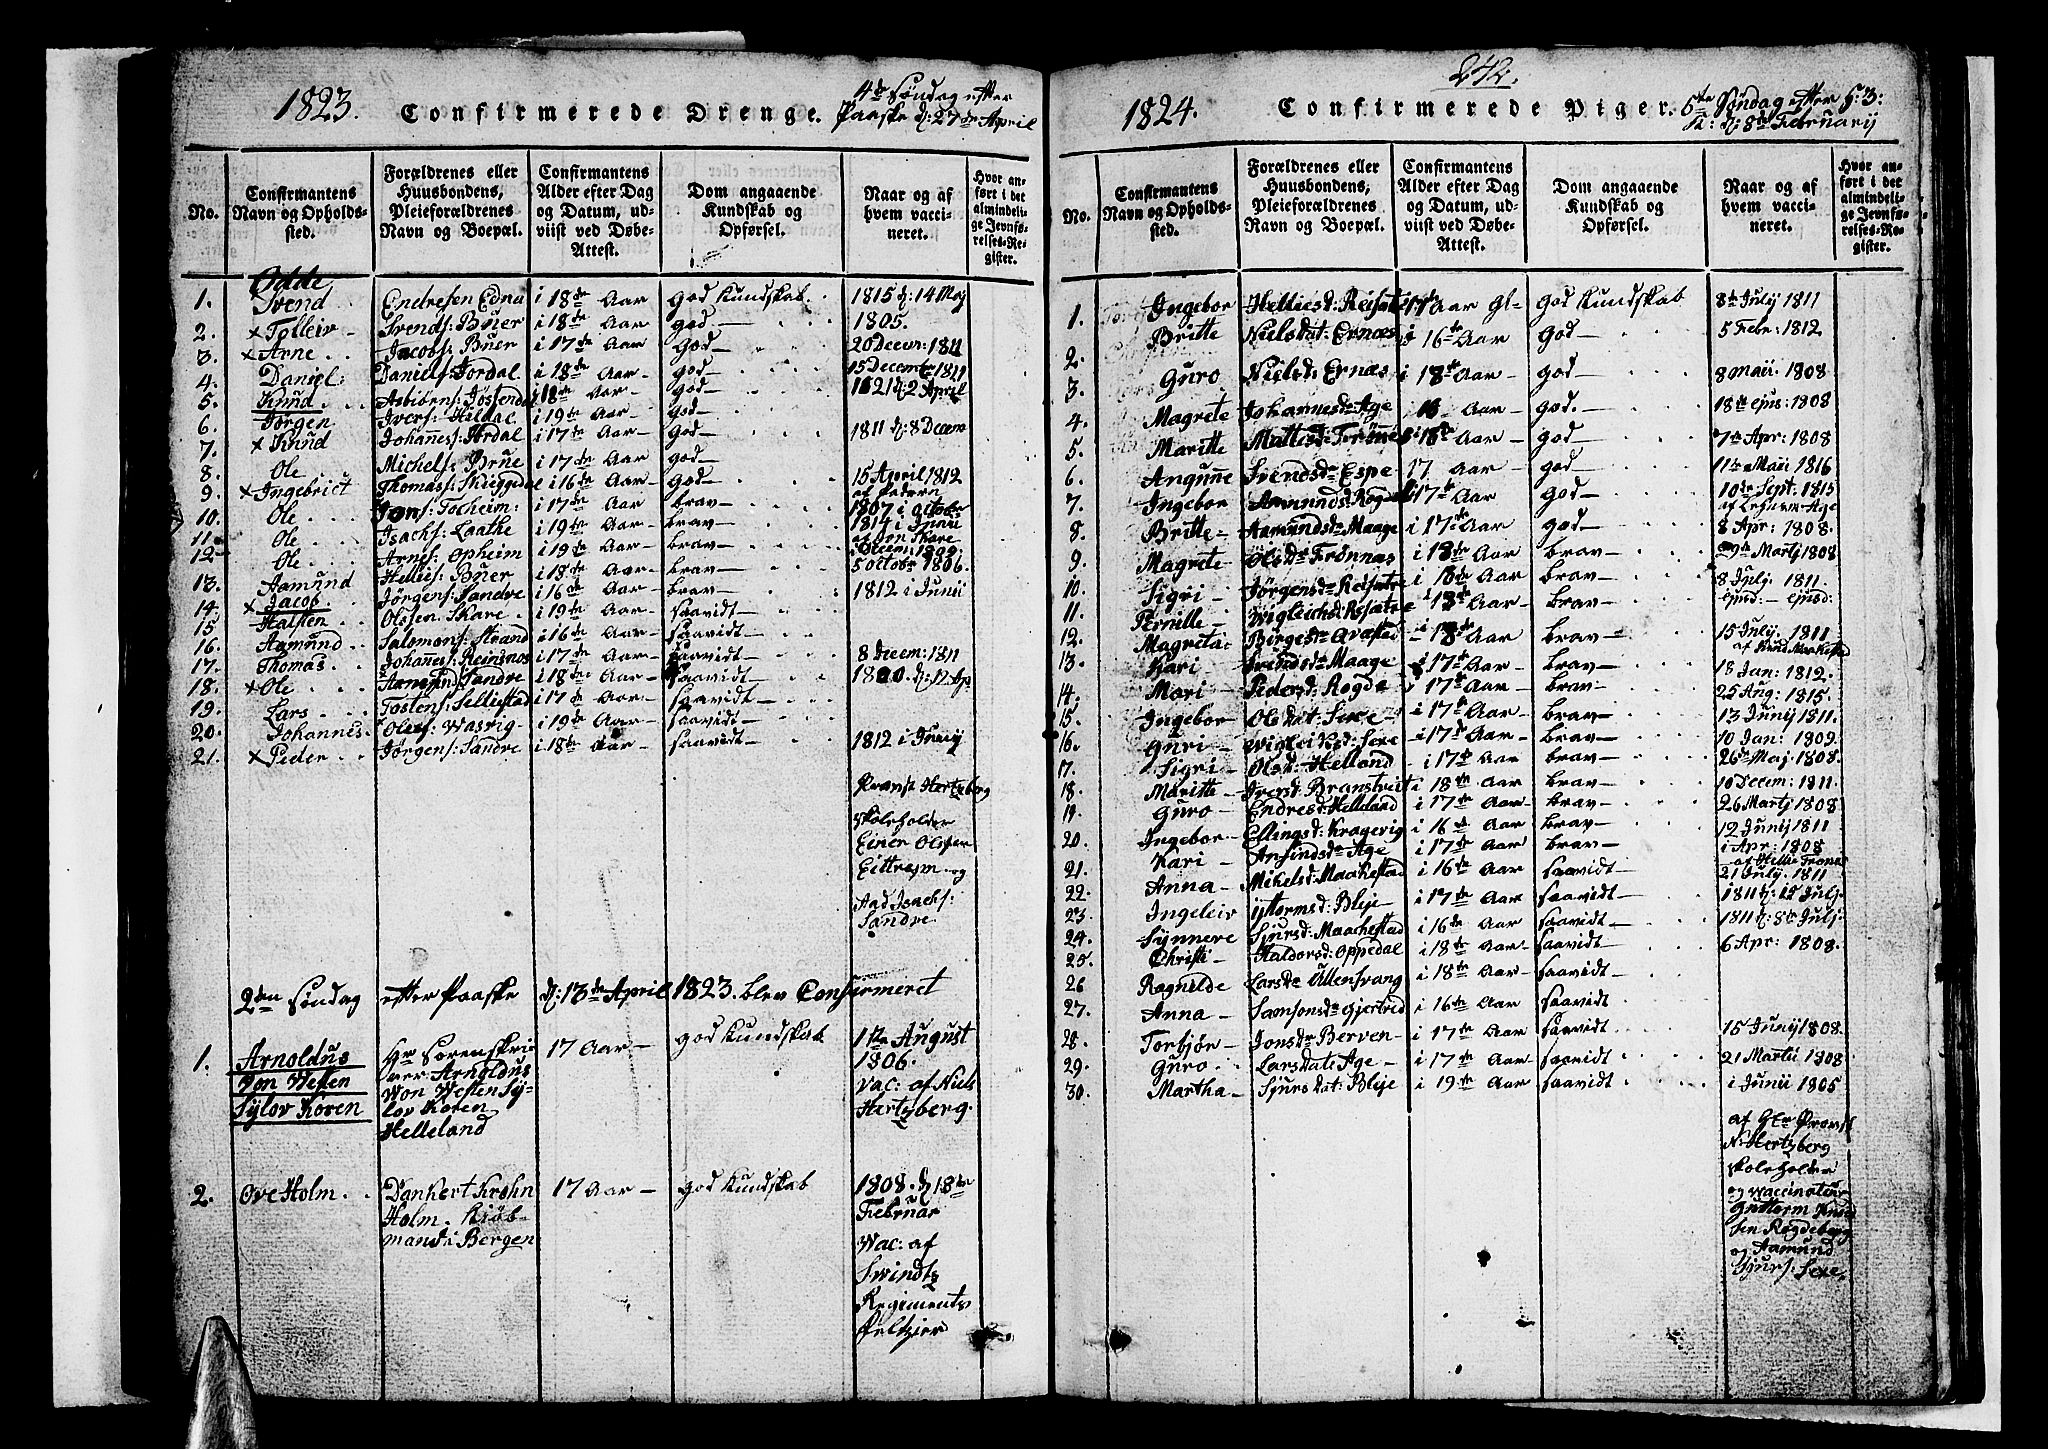 1823. Confirmerede Drenge. 4de Søndag efter
Paaske d: 27de April
No.
Confirmantens Navn og Opholdssted.
Forældrenes eller Huusbondens, Pleieforældrenes Navn og Boepæl.
Confirmantens Alder efter Dag og Datum, udviist ved Døbe-Attest.
Dom angaaende Kundskab og Opførsel.
Naar og af hvem vaccineret.
Hvor anført i det almindelige Jevnførelses-Register.
Odde
1. Svend Endresen Edna i 18de Aar god Kundskab. 1815 d: 14 Maj
2. × Tolleiv Svends: Buer i 18de Aar god 1805.
3. × Arne Jacobs: Buer i 17de Aar god 20 Decemr: 1811
4. Daniel Daniels: Jordal i 18de Aar god 15 Decembr: 1811
5. Knud Asbiørns: i 18de Aar god d: 2 April
6. Jørgen Ivers: Hildal i 19de Aar god
7. × Knud Johannes: i 17de Aar god 1811 d: 8 Decem
8. Ole Michels: Brue i 17de Aar god
9. × Ingebrict Thomas: Skieggedal i 16de Aar god 15 April 1812
10. Ole Jons: Tocheim i 17de Aar brav 1807 i octobr
11. Ole Isachs: Laathe i 19de Aar brav 1814 i Junii
af Jon Skare
12 Ole Arnes: Opheim i 19de Aar brav i Decem: 1809.
13. Aamund Hellies: Buer i 18de Aar brav 5 octobr 1806.
14. × Jacob Jørgens: Sandre i 16de Aar brav 1812 i Junii
15 Halsten Olssen Skare i 19de Aar saavidt
16. Aamund Salomons: Strand i 16de Aar saavidt
17. Thomas Johannes: Reinsnos i 17de Aar saavidt 8 Decem: 1811
18. × Ole Sandre i 18de Aar saavidt
19. Lars Tostens: Selliestad i 17de Aar saavidt
20. Johannes Oles: i 19de Aar saavidt
21. × Peder Jørgens: Sandre i 18de Aar saavidt 1812 i Junij
Provst Hertzberg
skoleholder
Einer Olssen
Eittreim og
Aad
Sandre.
2den Søndag efter Paaske d: 13de April 1823. blev Confirmeret
1. Arnoldus Von Westen Sylov Koren
Hr Sorenskriver Arnoldus Von Westen Sylov Koren Helleland
17 Aar god Kundskab
1te August
1806.
vac: af Niels
Hertzberg.
2. Ove Holm.
Dankert Krohn Holm. Kiøbmand i Bergen
17 Aar god Kundskab
1808. d: 18de
Februar
Vac: af
Swindtz
Regiments
Feltzier
242.
1824. Confirmerede Piger. 5te Søndag efter h: 3:
k: d: 8de Februarij
No.
Confirmantens Navn og Opholdssted.
Forældrenes eller Huusbondens, Pleieforældrenes Navn og Boepæl.
Confirmantens Alder efter Dag og Datum, udviist ved Døbe-Attest.
Dom angaaende Kundskab og Opførsel.
Naar og af hvem vaccineret.
Hvor anført i det almindelige Jevnførelses-Register.
1. Ingebor Helliesd: Reisæter Aar god Kundskab 8de Julij 1811
2. Britte Nielsdat: Ernæs i 16de Aar god 5 Febr: 1812
3. Guro Nielsd: Ernæs i 18de Aar god 8 Maii 1808
4. Magrete Johannesd: Age Aar god. 18de ejus: 1808
5. Maritte i 18de Aar god 7de Apr: 1808
6. Angunne Svendsdr Espe 17 Aar god 11te Maii 1816
7. Ingebor Aamundsd: i 17de Aar god 10de Sept: 1815
8. Britte Aamundsdr Maage i 17de Aar god 8 Apr: 1808.
9. Magrete Olsdr Trønnæs i 18de Aar brav Martj 1808
10. Sigri Jørgensd: Reisæter Aar brav 8 Julj. 1811.
11. Pernille Wigleichsd: Reisæter i 18de Aar brav ejusd: ejusd:
12. Magreta Aar brav 15 July. 1811
13. Kari Maage i 17de Aar brav 18 Jan: 1812.
14. Mari Pedersd: Rogde i 17de Aar brav 25 Aug: 1815.
15. Ingebor Olsdat: Sexe i 17de Aar brav 13 Junij 1811.
16. Guri Wigleiksd: Sexe i 17de Aar brav 10 Jan: 1809.
17. Sigri Olsd: Helland i 17de Aar brav 26de Maj 1808.
18. Maritte Iversd: i 18de Aar brav 10 Decem: 1811.
19. Guro Endresd: Helleland i 17de Aar brav 26 Martj 1808
20. Ingebor Ellingsd: Kragevig i 16de Aar brav 12 Junij 1811
21. Kari Age i 17de Aar brav i Apr: 1808
22. Anna Mikelsd: Maakestad i 16de Aar saavidt 21 July. 1811
23. Ingeleiv Blije i 17de Aar saavidt 1811 d: 15 Julj
24. Synnere Sjursd: Maachestad i 16de Aar saavidt 1811 d: 8de Julj
25. Christi Haldorsd: Oppedal i 18de Aar saavidt 6 Apr: 1808.
26 Ragnilde Larsdr Ullensvang i 18de Aar saavidt
27. Anna Samsonsdr Gjertved i 16de Aar saavidt
28. Torbjør Jonsdr Berven i 17de Aar saavidt 15 Junij 1808.
29. Guro Larsdatr Age i 17de Aar saavidt 21 Martii 1808
30. Martha Sjursdat: Blije i 19de Aar saavidt i Junii 1805
af Hr Provst
N: Hertzberg
skoleholder
og Vaccinateur
Guttorm Knud
sen
og Aamund
Sjurs: Sexe.